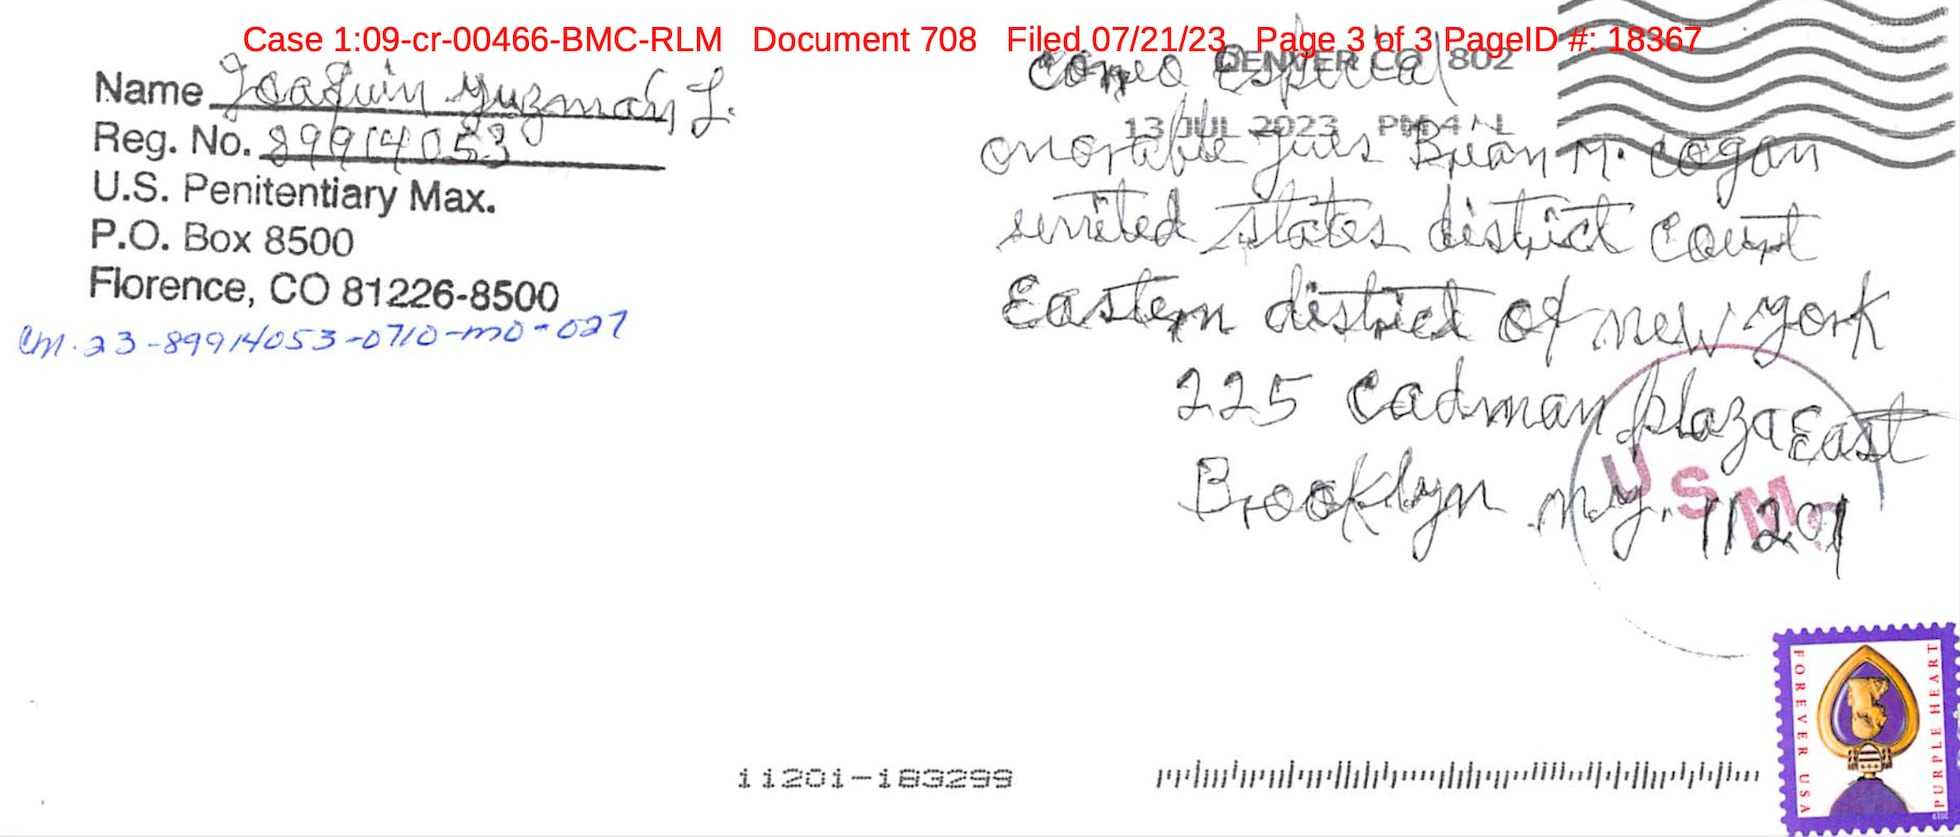 Case 1:09-cr-00466-BMC-RLM Document 708 Filed 07/21/23 Page 3 of 3 PageID #: 18367
Name Joaquin Guzman L.
Reg. No. 89914053
U.S. Penitentiary Max.
P.O. Box 8500
Florence, CO 81226-8500
CM. 23-89914053-0710-MO-027
DENVER CO 802
13 JUL 2023 PM 4 L
Correo Especial
onorable jues Brian M. Cogan
united states district Court
Eastern district of new york
225 Cadman plaza East
Brooklyn ny. 11201
USM
FOREVER USA
PURPLE HEART
11201-183299